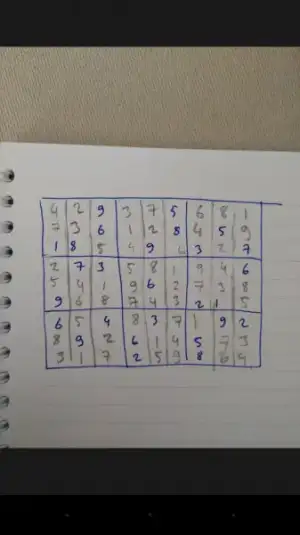 4 2 9 3 7 5 6 8 1
7 3 6 1 2 8 4 5 9
1 8 5 4 9 6 3 2 7
2 7 3 5 8 1 9 4 6
5 4 1 9 6 2 7 3 8
9 6 8 7 4 3 2 1 5
6 5 4 8 3 7 1 9 2
8 9 2 6 1 4 5 7 3
3 1 7 2 5 9 8 6 4